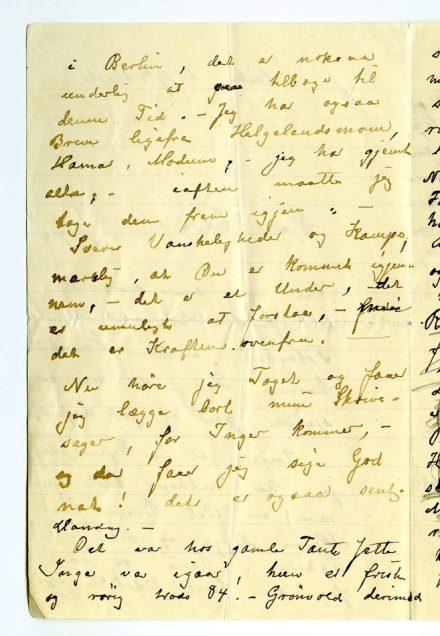 i Berlin, det er noksaa
underlig at tilbage til
denne Tid. - Jeg har ogsaa
Breve ligefra Helgelandsmoen,
Hamar, Modum, - jeg har gjemt
alle, - iaften maatte jeg
tage dem frem igjen -
Svere Vanskeligheder og Kampe,
mærkelig, at Du er kommet igjen-
nem, - det er et Under, - det
er umuligt at forstaa, -
det er Kraften ovenfra.
Nu hører jeg Toget og faar
jeg lægge bort mine Skrive-
sager, for Inger kommer, -
og da faar jeg sige God
nat! det er ogsaa sent.
Mandag. -
Det var hos gamle Tante Jette
Inge var igaar, hun er frisk
og rørig trods 84. - Grönvold derimod